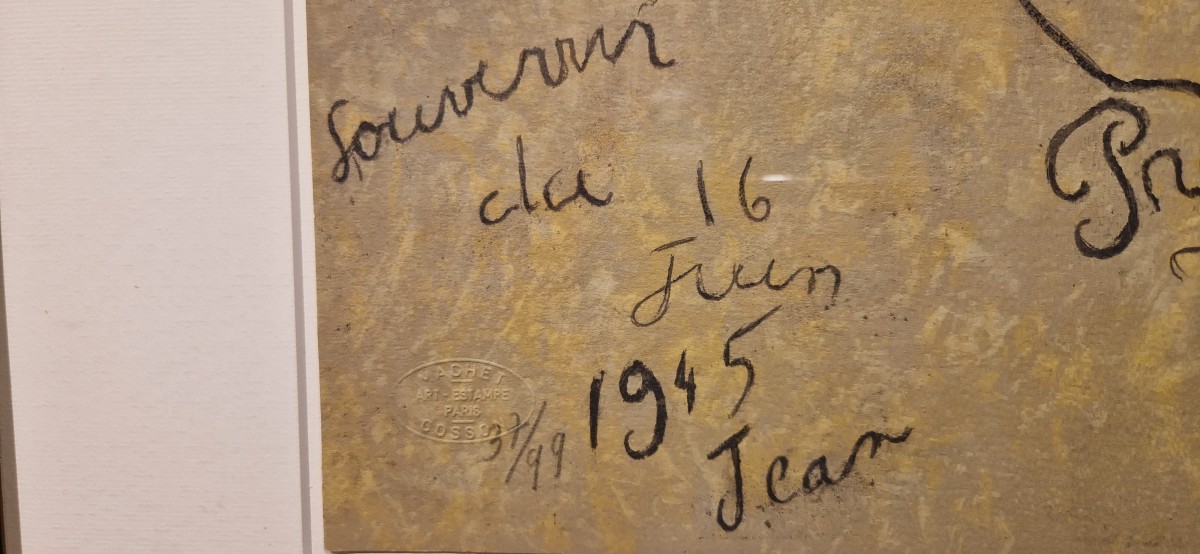 Souvenir
du 16
Juin
1945
Jean
VACHET
ART - ESTAMPE
PARIS
COSSO
37/99